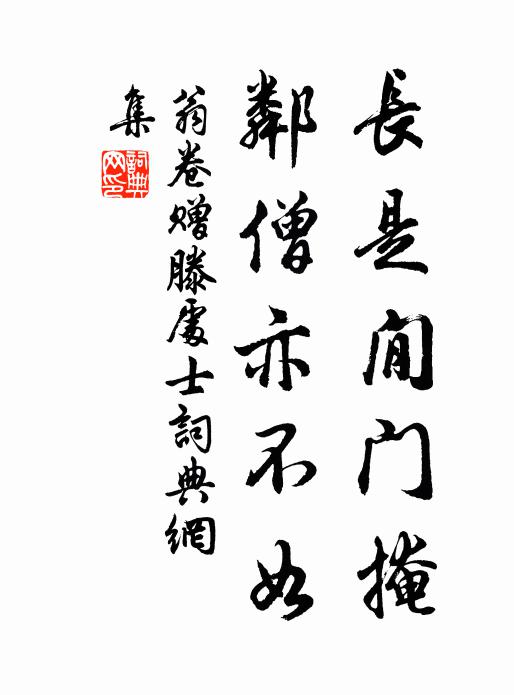 長是閒門掩
鄰僧亦不如
翁卷贈滕處士詞典網
集
詞典
网印